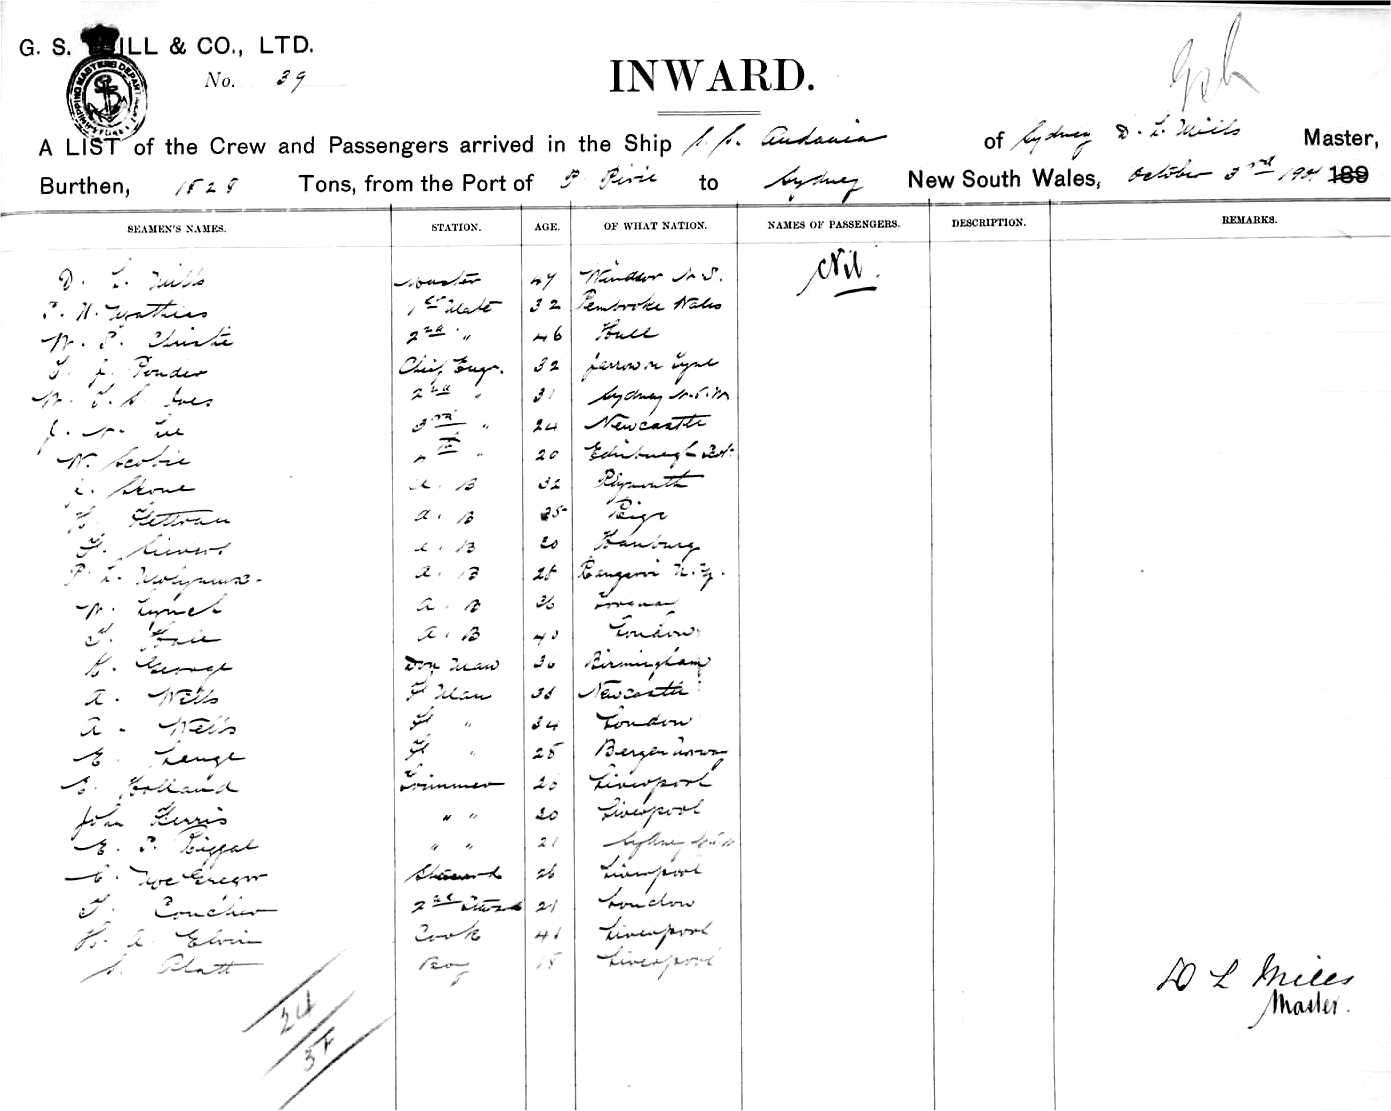 G. S. ILL & CO., LTD.
No. 39
INWARD.
A LIST of the Crew and Passengers arrived in the Ship S.S. of Sydney D. L. Mills Master,
Burthen, Tons, from the Port of P. Pirie to Sydney New South Wales, October 3rd 189
SEAMEN'S NAMES. STATION. AGE. OF WHAT NATION. NAMES OF PASSENGERS. DESCRIPTION. REMARKS.
D. L. Mills Master 47 Windsor N. S. Nil.
1st Mate 32 Pembroke Wales
W. P. Christie 2nd " 46 Hull
T. J. Ponder Chief Engr. 32 Jarrow on Tyne
Ives 2nd " 31 Sydney N.S.W
Lee 3rd " 24 Newcastle
W. Scobie 4th " 20 Edinburgh Scot.
A. B 32 Plymouth
A. B Riga
A. B 20 Hamburg
P. L. A. B 28
W. Lynch A. B 36
T. A. B 40 London
H. George Don Man 36 Birmingham
A. Wells F Man 36 Newcastle
A. Wells F " 34 London
E. Lenge F " 28 Bergen Norway
E. Holland Trimmer 26 Liverpool
John " " 20 Liverpool
E. P. Riggal " " 21 Sydney N.S.W
McGregor Steward 26 Liverpool
T. 2nd 21 London
H. A. Elvin Cook 41 Liverpool
S. Platt Boy 18 Liverpool
D L Mills
Master.
24